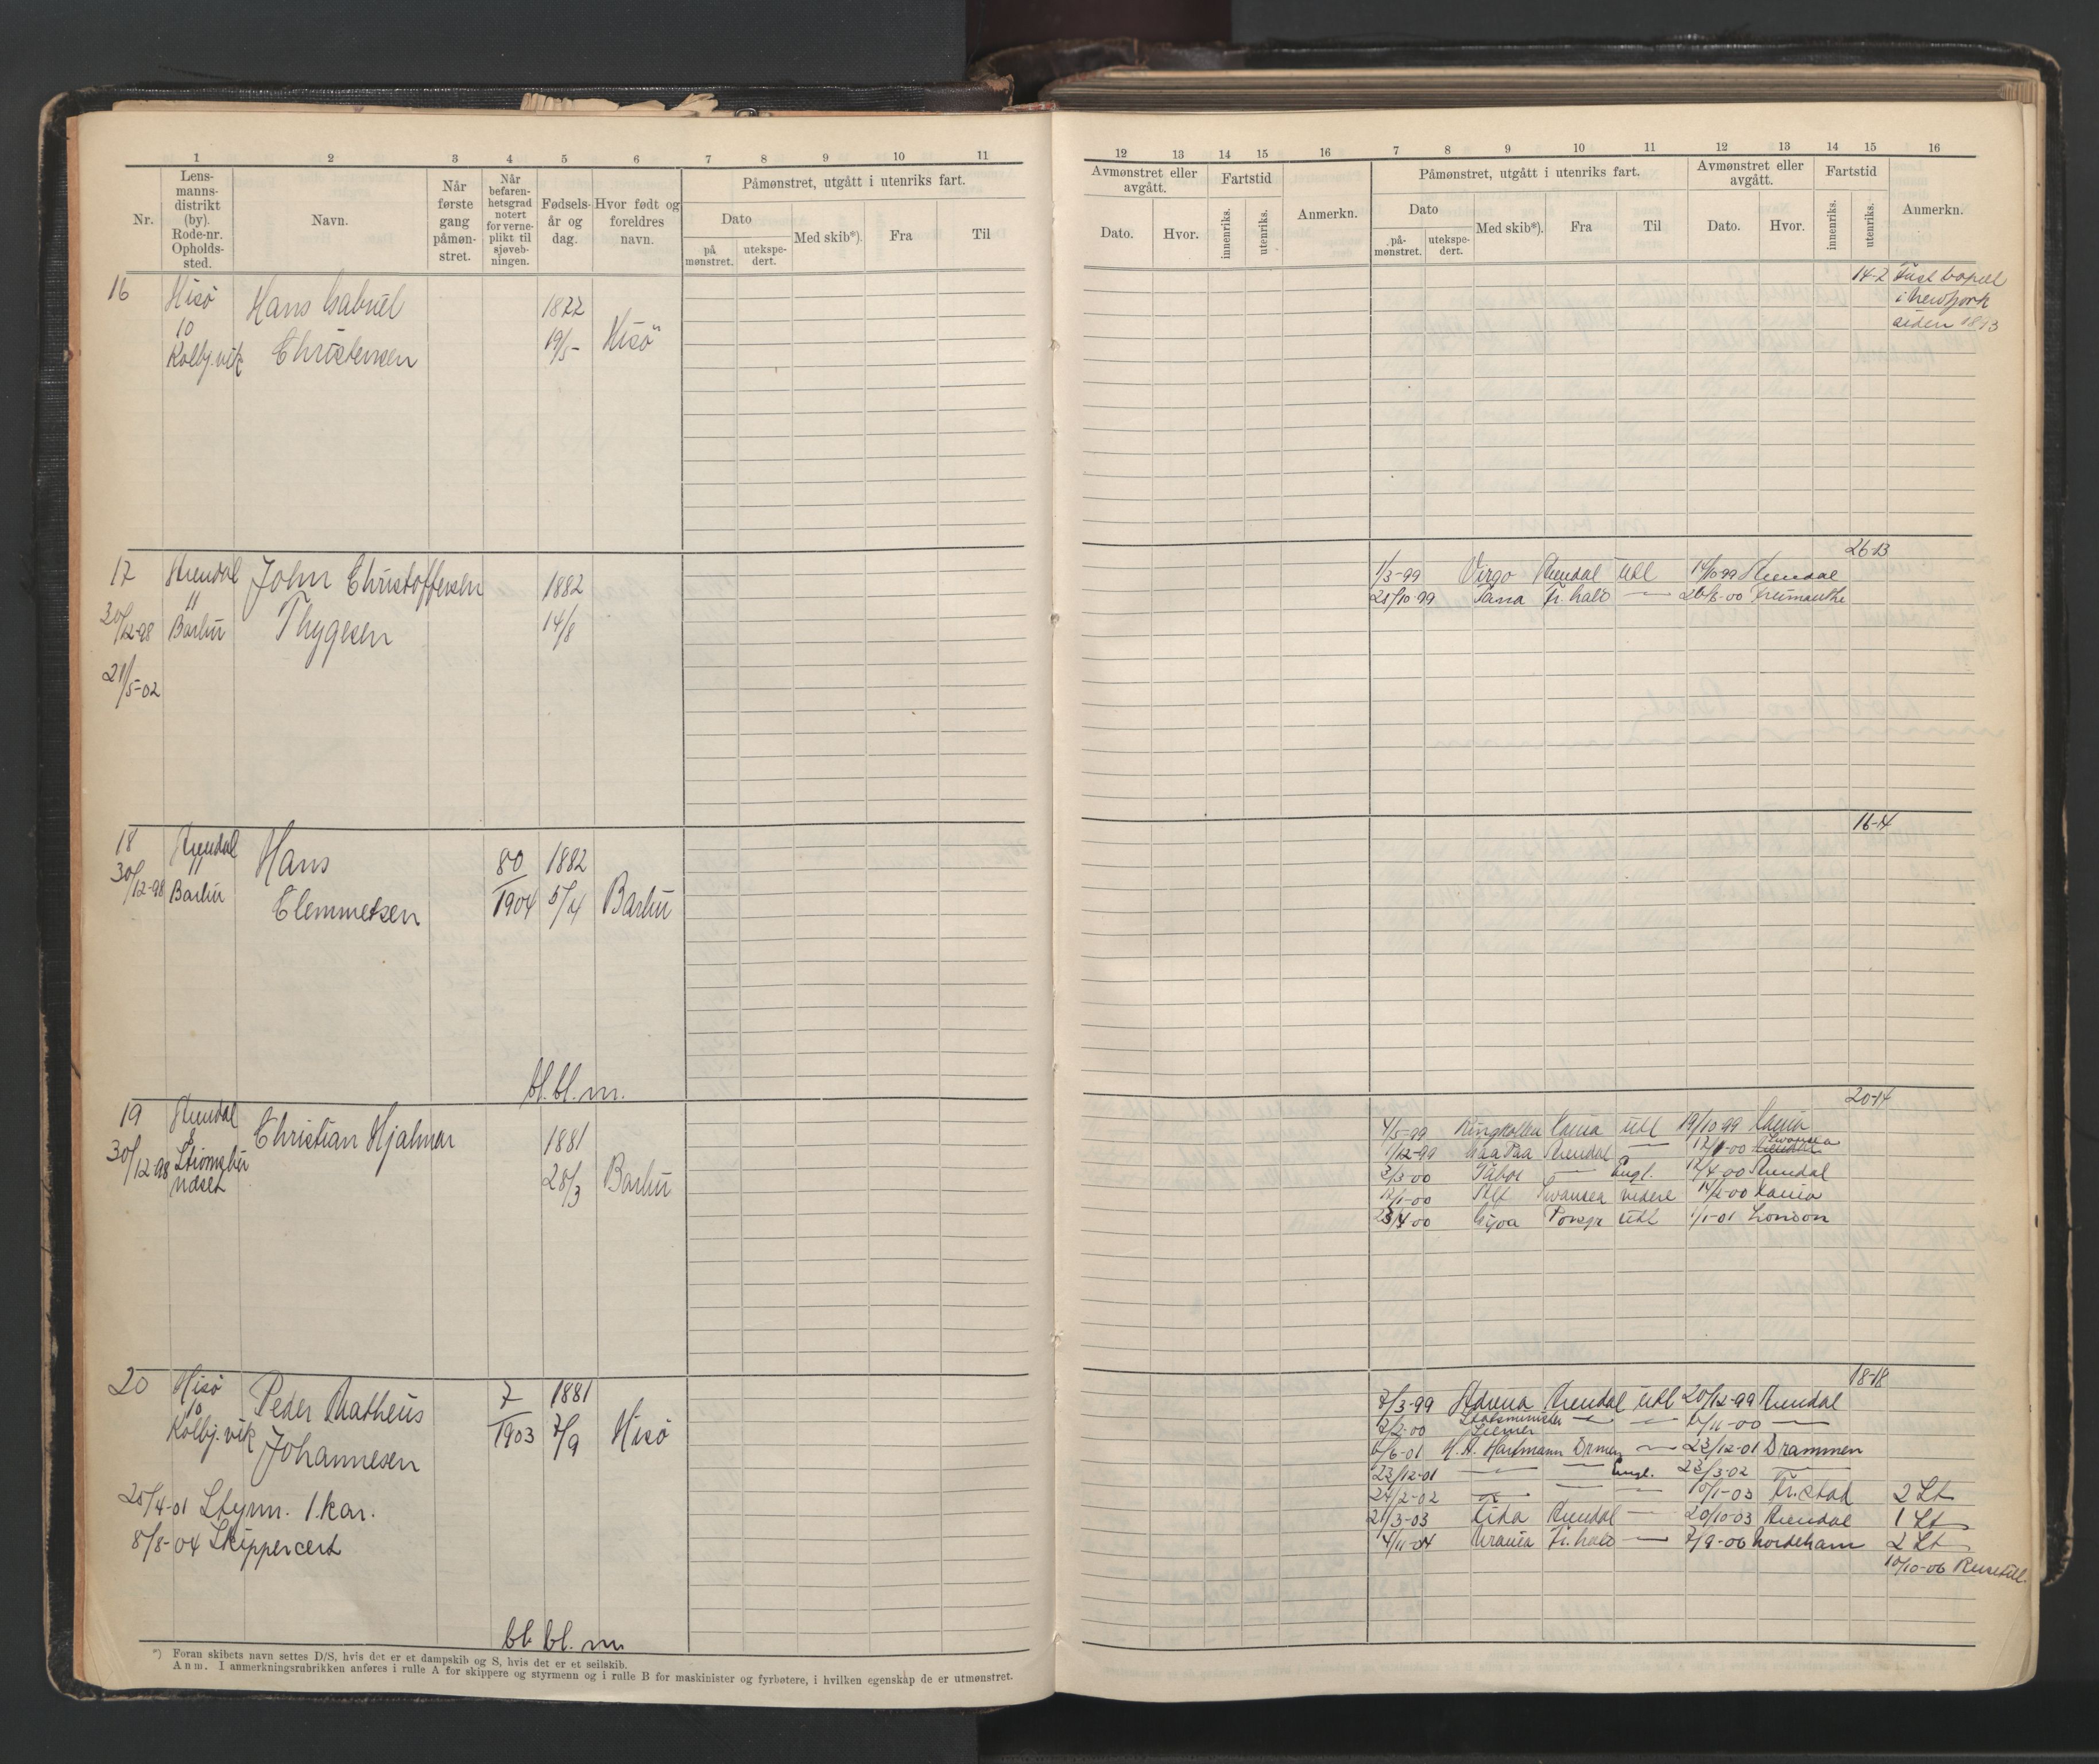 1 2 3 4 5 6 7 8 9 10 11
Nr.
Lens-
manns-
distrikt
(by).
Rode-nr.
Opholds-
sted.
Navn.
Når
første
gang
påmøn-
stret.
Når
befaren-
hetsgrad
notert
for verne-
plikt til
sjøveb-
ningen.
Fødsels-
år og
dag.
Hvor født og
foreldres
navn.
Påmønstret, utgått i utenriks fart.
Dato
på
mønstret.
utekspe-
dert.
Med skib*).
Fra
Til
16 Hisö Hans Gabriel 1822
10
Kolbj.vik Christensen 19/5- Hisö
17 Arendal John Christoffersen 1882
30/12-98 Barbu Thygesen 14/8
21/5-02
18 Arendal Hans 80 1882
30/12-98 Barbu Clemmetsen 1904 5/4 Barbu
bl. bl. m.
19 Arendal Christian Hjalmar 1881
30/12-98 Strömsbu
ndset 28/3 Barbu
20 Hisö Peder Matheus 7 1881
10
Kolbj.vik Johannesen 1903 7/9 Hisö
25/4-01 Styrm. 1. kar.
8/8-04 Skippercert
bl. bl. m
*) Foran skibets navn settes D/S, hvis det er et dampskib og S, hvis det er et seilskib.
Anm. I anmerkningsrubrikken anføres i rulle A for skippere og styrmenn og i rulle B for maskinister og fyrbøtere, i hvilken egenskap de er utmønstret.
12 13 14 15 16 7 8 9 10 11 12 13 14 15 16
Avmønstret eller
avgått.
Dato.
Hvor.
Fartstid
innenriks.
utenriks.
Anmerkn.
Påmønstret, utgått i utenriks fart.
Dato
på-
mønstret.
utekspe-
dert.
Med skib*).
Fra
Til
Avmønstret eller
avgått.
Dato.
Hvor.
Fartstid
innenriks.
utenriks.
Anmerkn.
14-2 Fast bopæl
i NewYork
siden 1893
26-13
1/3-99 Virgo Arendal Utl 14/10 99 Arendal
21/10-99 Fr.hald — 26/8-00
16-14
20-14
4/5-99 Ringkollen Utl 19/10-99
1/12-99 Arendal — Swansea
3/3-00 Tabor — Engl. 12/4-00 Arendal
12/1-00 Alf Swansea videre
23/4-00 Gjøa Porsgr Utl 1/1-01 London
18-18
7/3-99 Arendal Utl 20/12-99 Arendal
2/2-00 Statsminister — — 6/11-00 —
6/6-01 H. A. Hartmann Drmen — 23/12-01 Drammen
23/12-01 — — Engl. 23/3-02 —
24/2-02 — — — 10/1-03 Fr.stad 2 St
21/3-03 Lida Arendal — 20/10-03 Arendal 1 St
4/11-04 Urania Fr.hald — 7/9-06 Nordeham 2 St
10/10-06